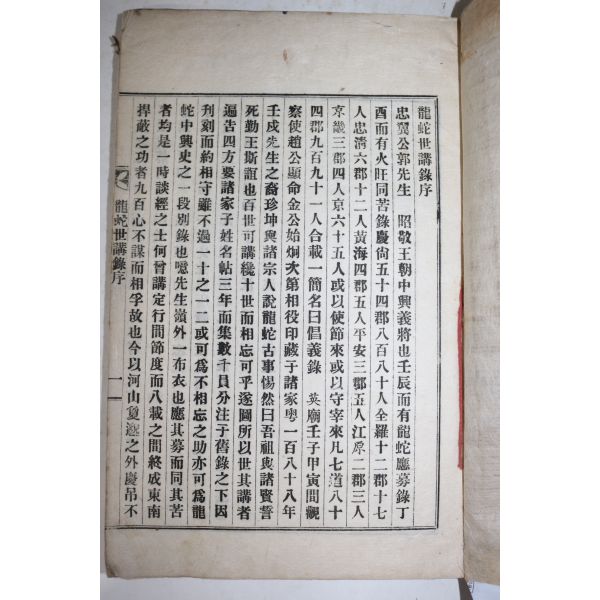 龍蛇世講錄序
忠翼公郭先生 昭敬王朝中興義將也壬辰而有龍蛇應募錄丁
酉而有火旺同苦錄慶尙五十四郡八百八十人全羅十二郡十七
人忠淸六郡十二人黃海四郡五人平安三鄕五人江原二郡三人
京畿三郡四人京六十五人或以使節來或以守宰來凡七道八十
四郡九百九十一人合載一簡名曰倡義錄 英廟壬子甲寅間觀
察使趙公顯命金公始炯次第相役印藏于諸家粤一百八十八年
壬戍先生之裔珍坤與諸宗人說龍蛇古事惕然曰吾祖與諸賢誓
死勤王斯誼也百世可講纔十世而相忘可乎遂圖所以世其講者
遍告四方要諸家子姓名帖三年而集數千員分注于舊錄之下因
刋刻而約相守雖不過一十之一二或可爲不相忘之助亦可爲龍
蛇中興史之一段別錄也噫先生嶺外一布衣也應其募而同其苦
者均是一時談經之士何嘗講定行間節度而八載之間終成東南
捍蔽之功者九百心不謀而相孚故也今以河山夐邈之外慶吊不
龍蛇世講錄序
一